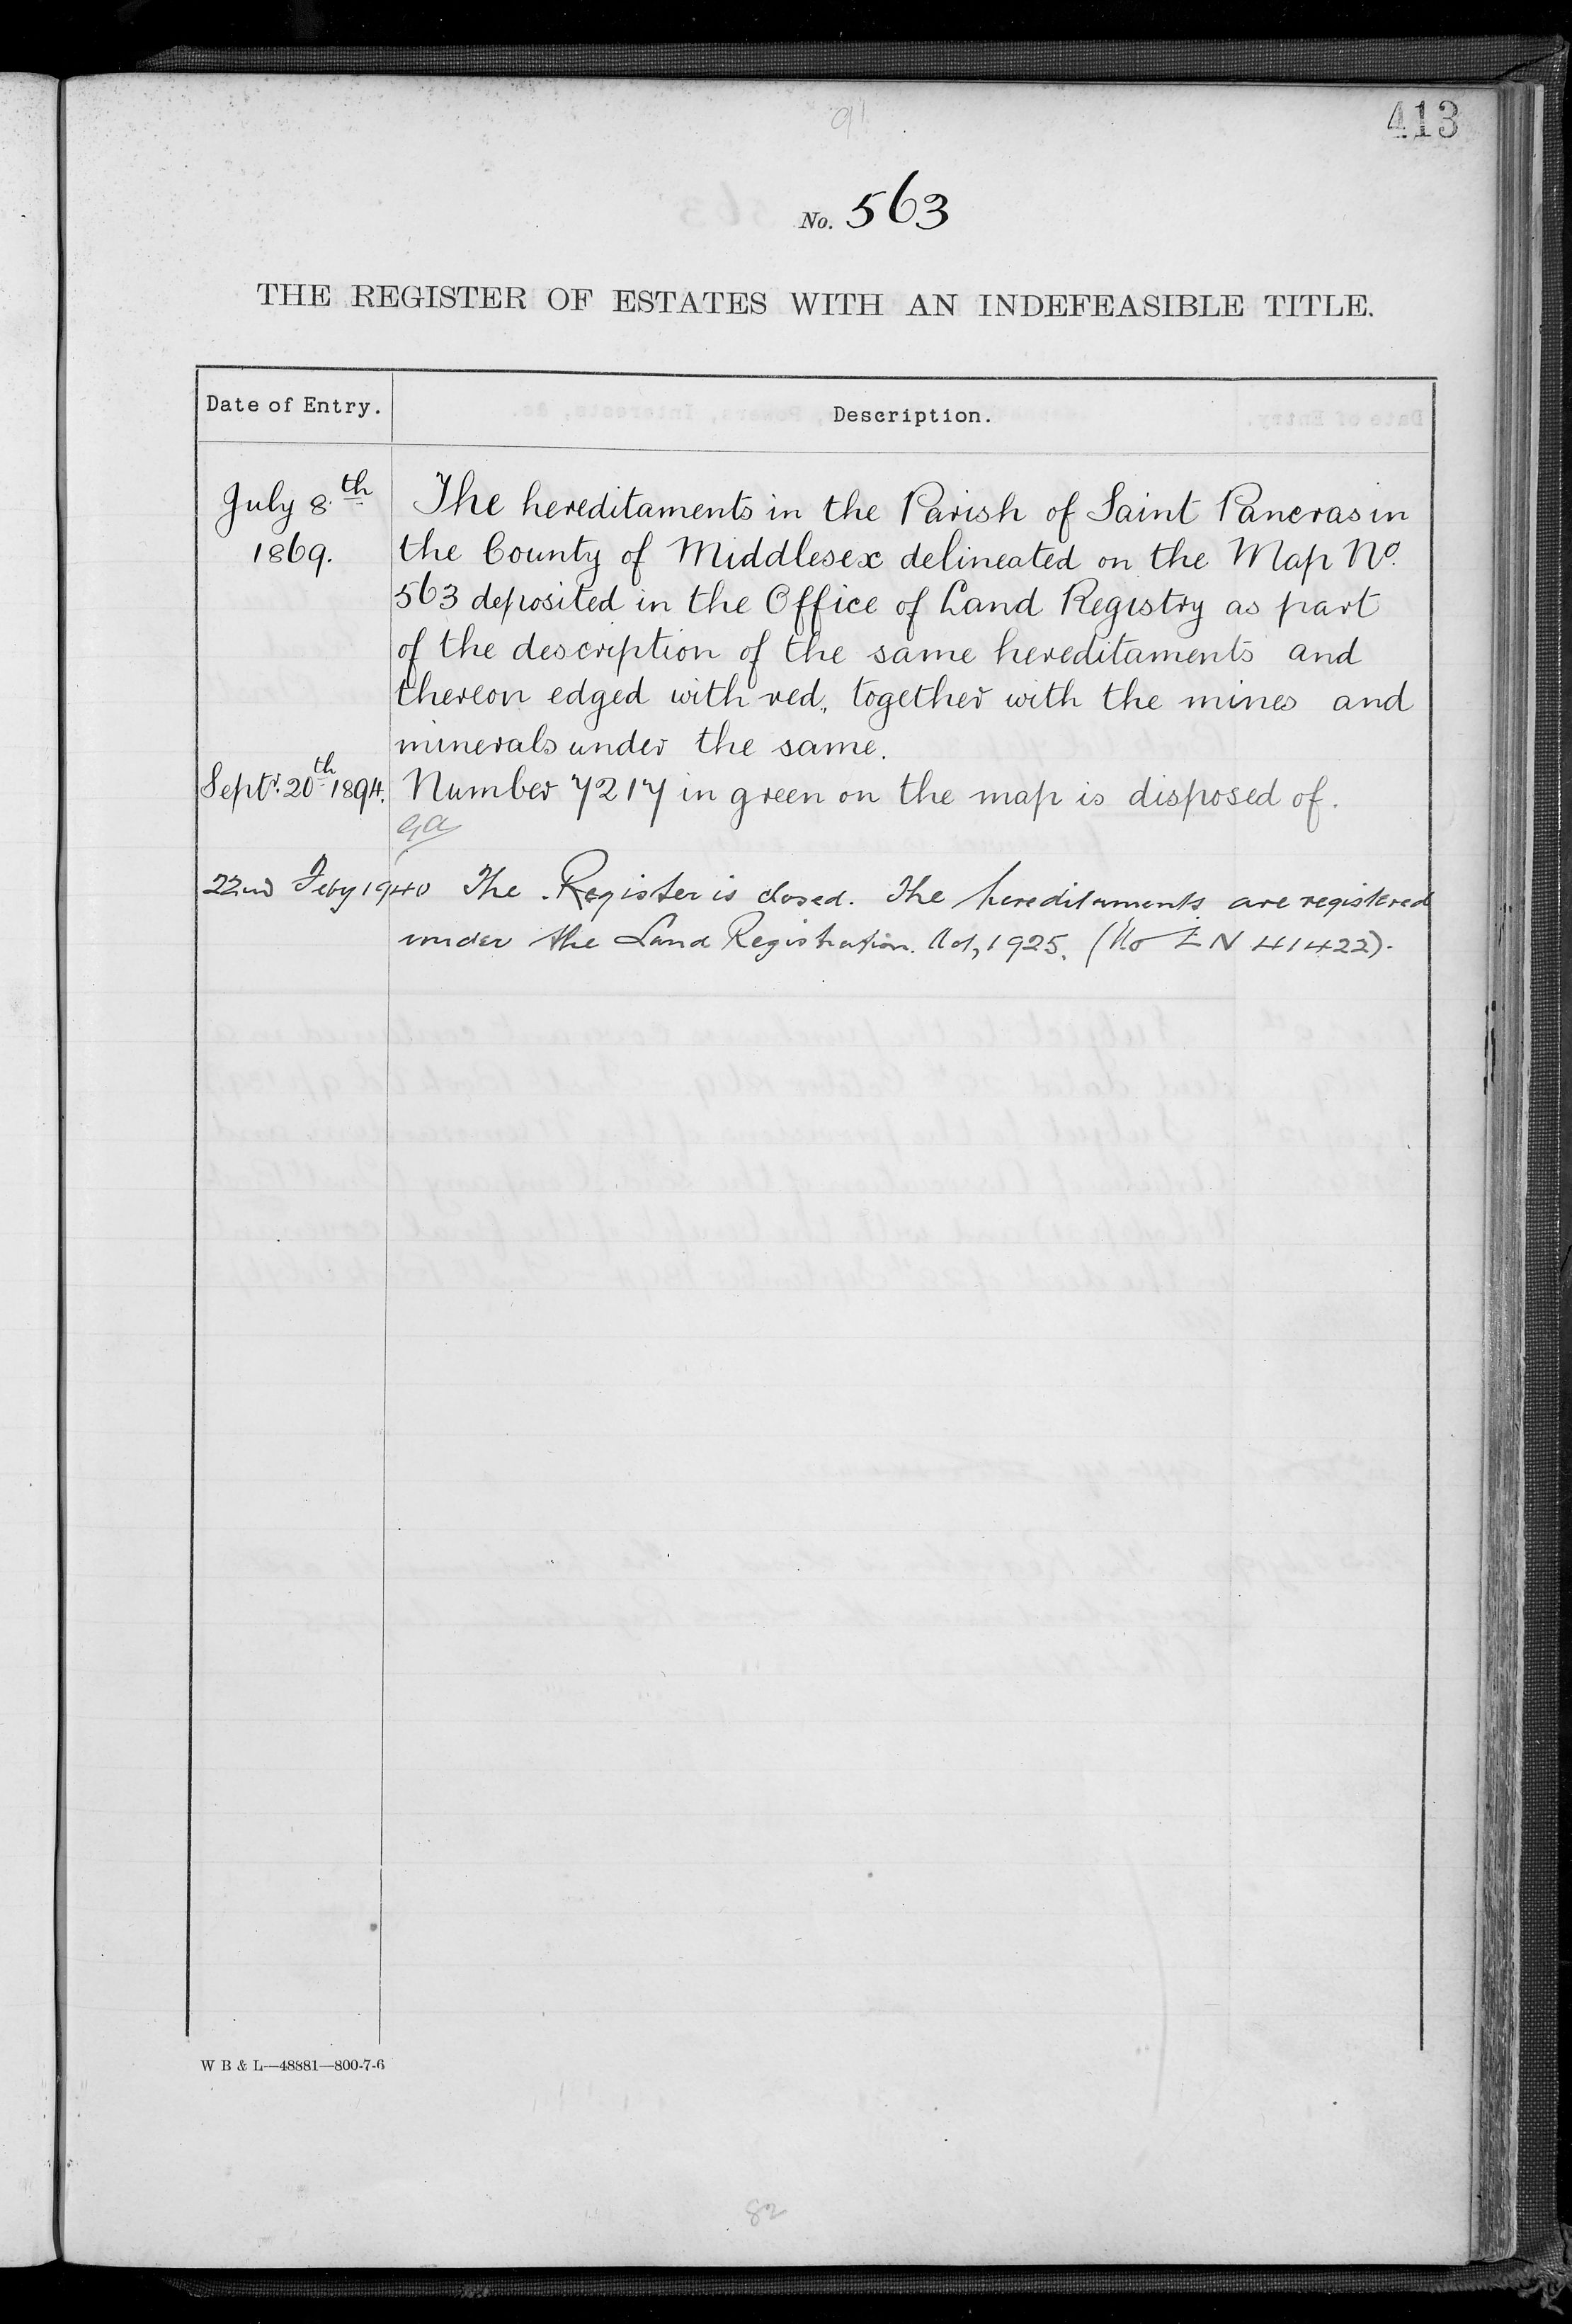 91
413
No. 563
THE REGISTER OF ESTATES WITH AN INDEFEASIBLE TITLE.
Date of Entry.
Description.
July 8th
1869.
The hereditaments in the Parish of Saint Pancras in
the County of Middlesex delineated on the Map No.
563 deposited in the Office of Land Registry as part
of the description of the same hereditaments and
thereon edged with red, together with the mines and
minerals under the same.
Septr. 20th 1894. Number 7217 in green on the map is disposed of.
22nd Feby 1940 The Register is closed. The hereditaments are registered
under the Land Registration Act, 1925. (No LN 41422).
W B & L—48881—800-7-6
82